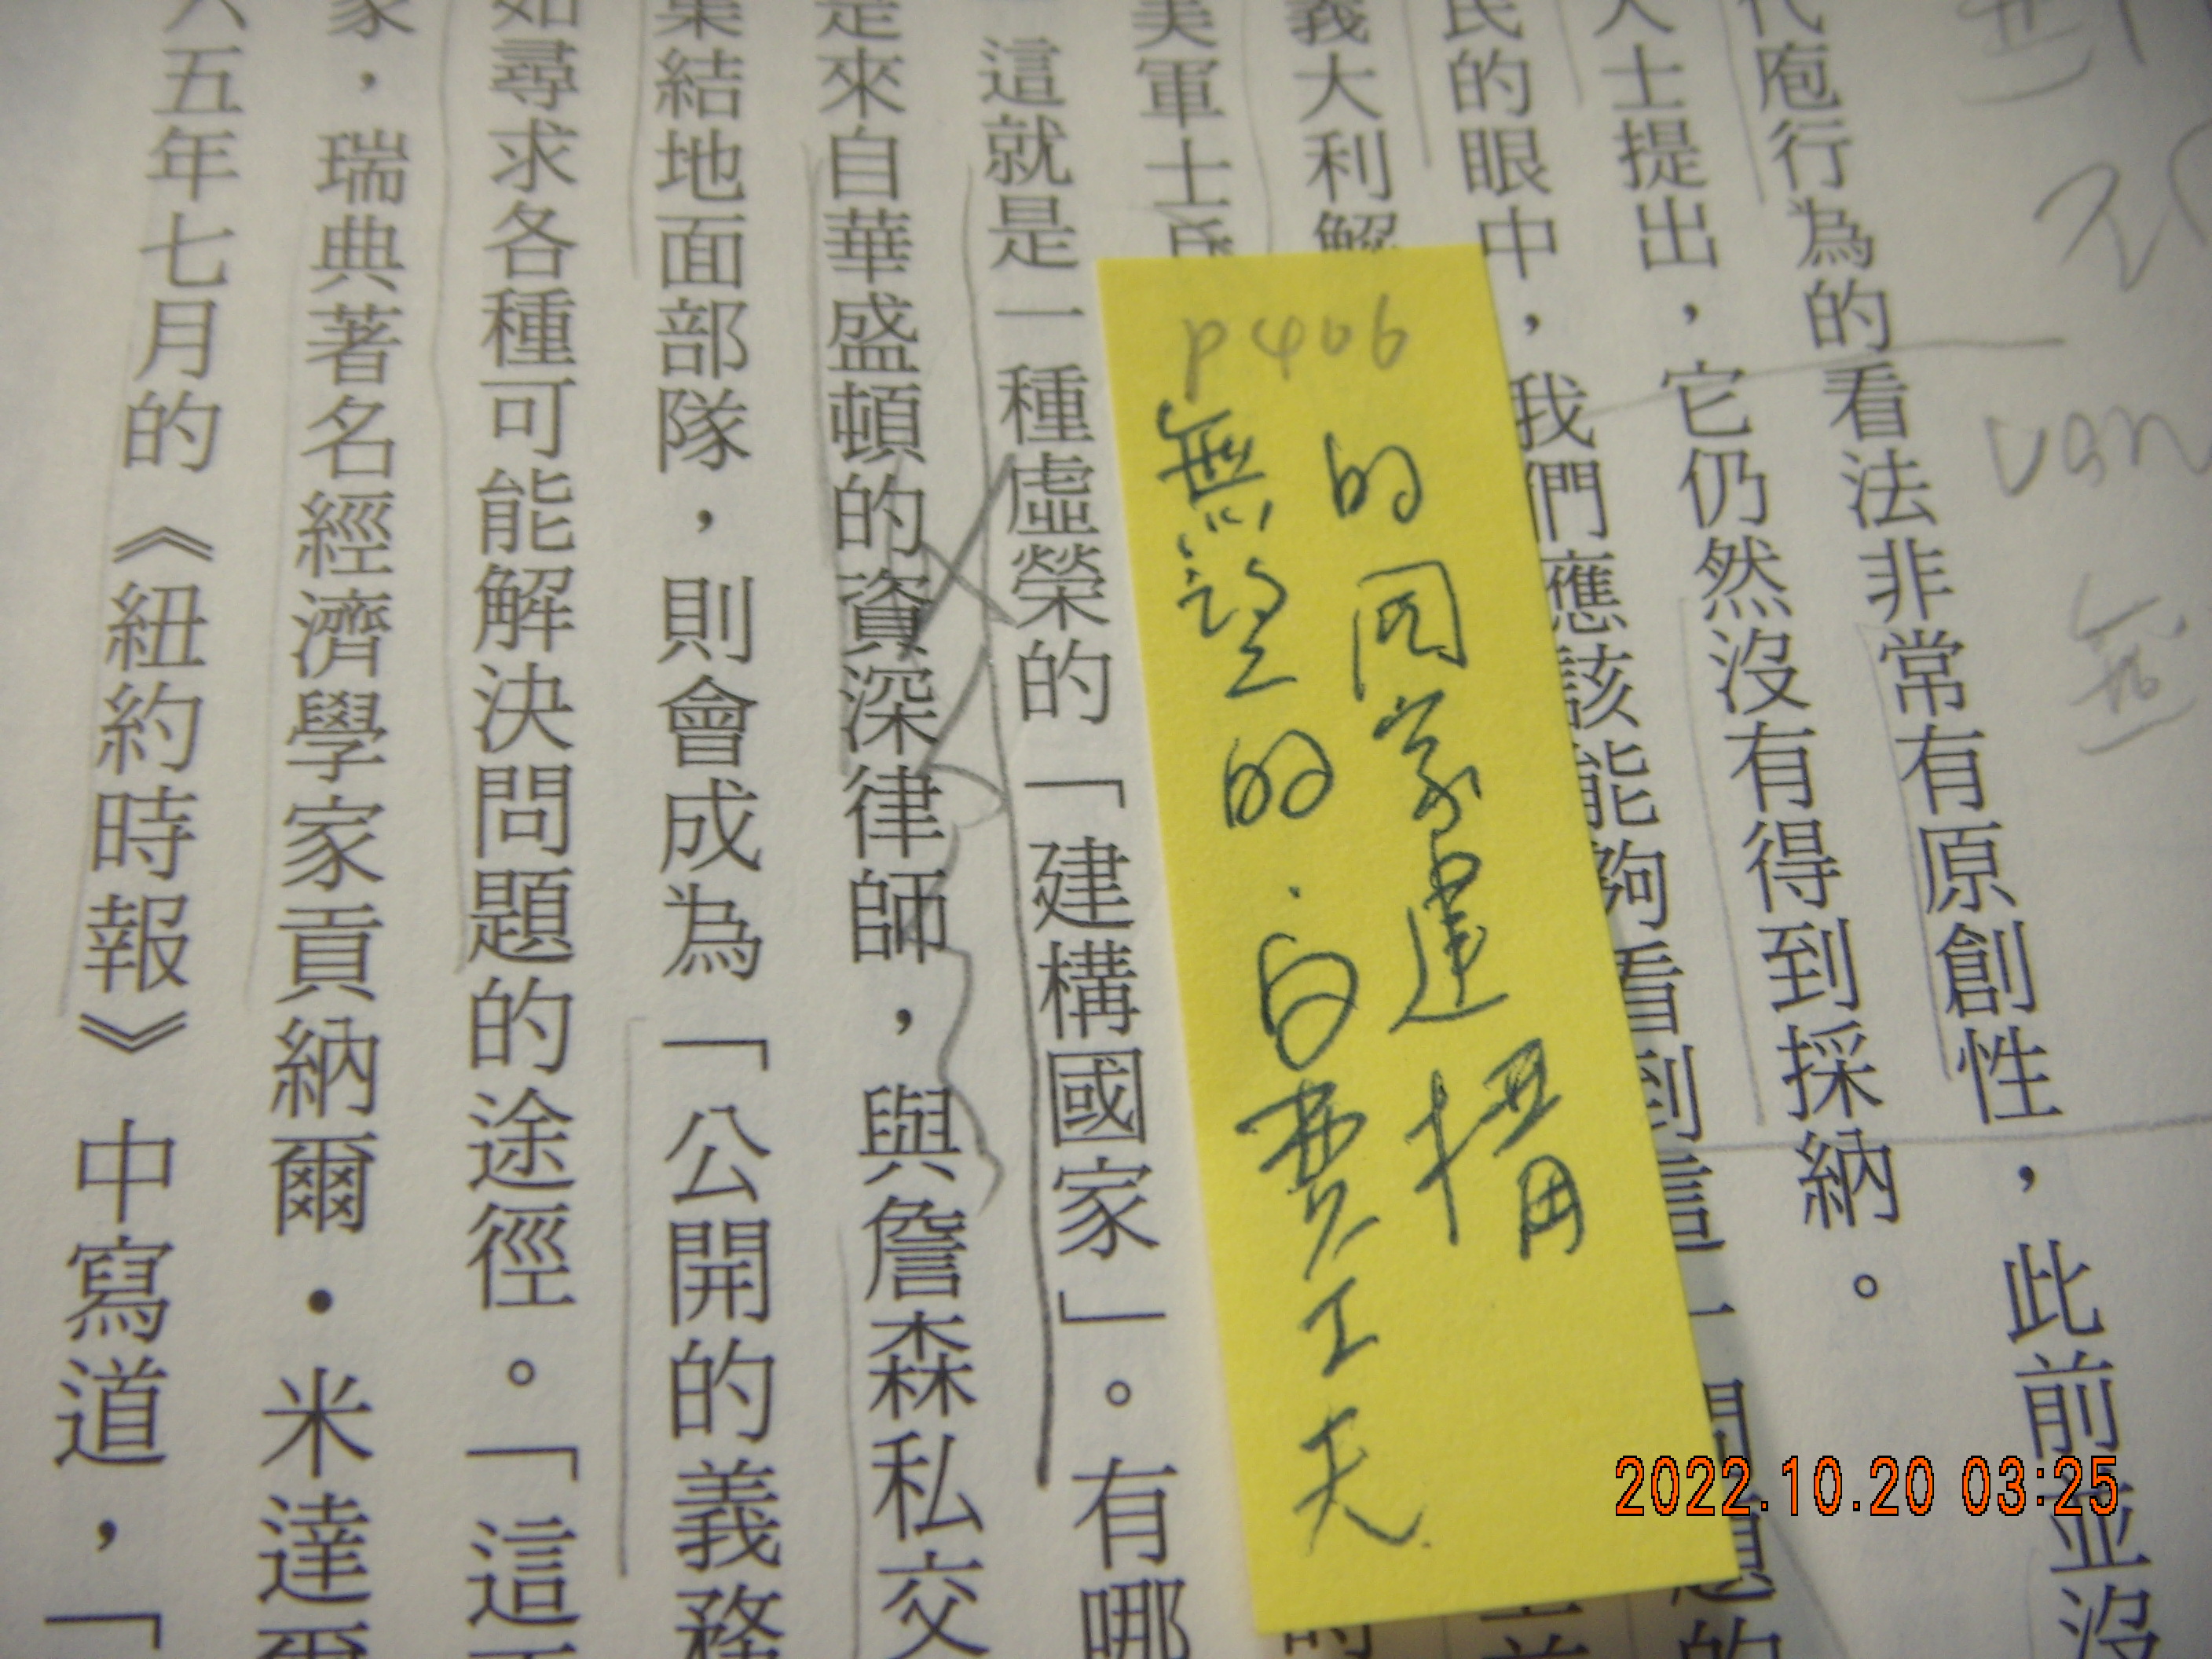 代庖行為的看法非常有原創性,此前並沒
人士提出,它仍然沒有得到採納。
民的眼中,我們應該能夠看到這一問題的
義大利解
美軍士兵
這就是一種虛榮的「建構國家」。有哪
是來自華盛頓的資深律師,與詹森私交
集結地面部隊,則會成為「公開的義務
如尋求各種可能解決問題的途徑。「這
家,瑞典著名經濟學家貢納爾・米達爾
六五年七月的《紐約時報》中寫道,「
p406
的国家建構
無望的.白費工夫
2022.10.20 03:25